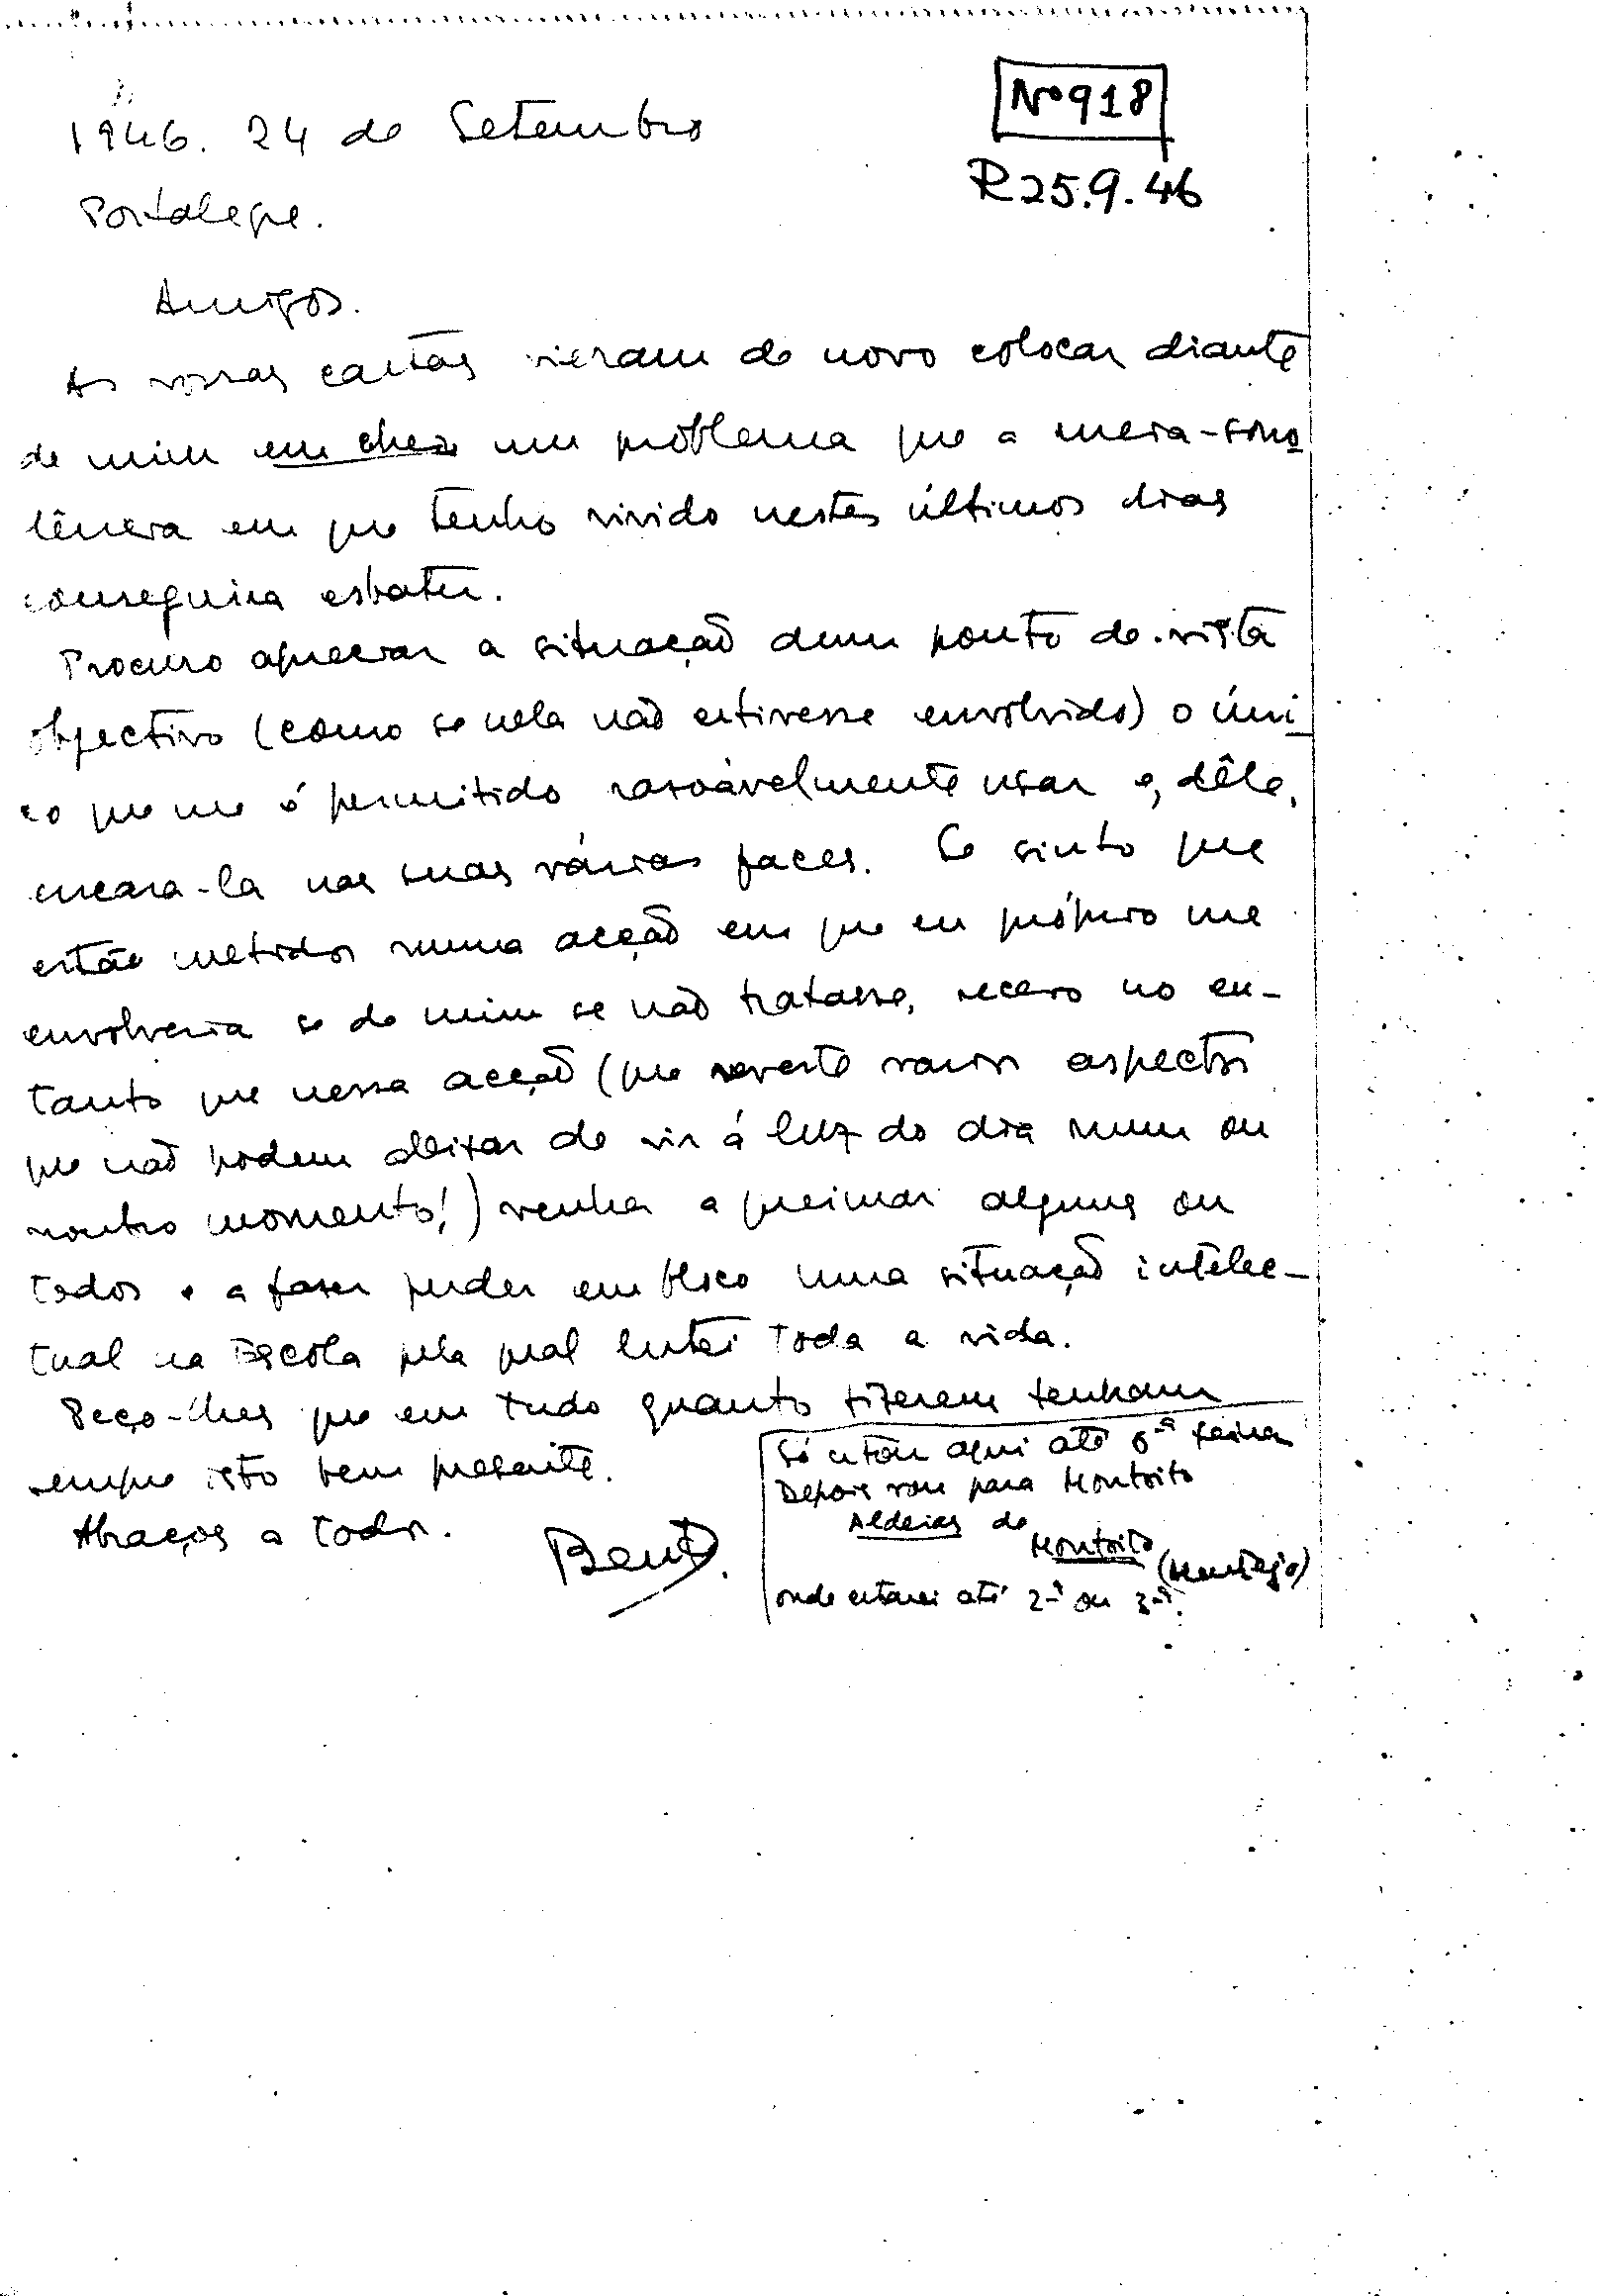 Nº 918
R 25.9.46
1946. 24 de Setembro
Portalegre.
Amigos.
As vossas cartas vieram de novo colocar diante
de mim em cheio um problema que a meia-sono
lência em que tenho vivido nestes últimos dias
conseguira esbater.
Procuro apreciar a situação dum ponto de vista
objectivo (como se nela não estivesse envolvido) o úni
co que me é permitido rasoávelmente usar e, dêle,
encara-la nas suas várias faces. Se sinto que
estão metidos numa acção em que eu próprio me
envolveria se de mim se não tratasse, receio no en-
tanto que nessa acção (que reveste varios aspectos
que não podem deixar de vir á luz do dia num ou
noutro momento!) venha a queimar alguns ou
todos e a faser perder em bloco uma situação intelec-
tual na Escola pela qual lutei toda a vida.
Peço-lhes que em tudo quanto fizerem tenham
sempre isto bem presente.
Abraços a todos.
Bento.
Só estou aqui até 6ª feira
Depois vou para Montoito
Aldeias de
Montoito
(Alentejo)
onde estarei até 2ª ou 3ª.